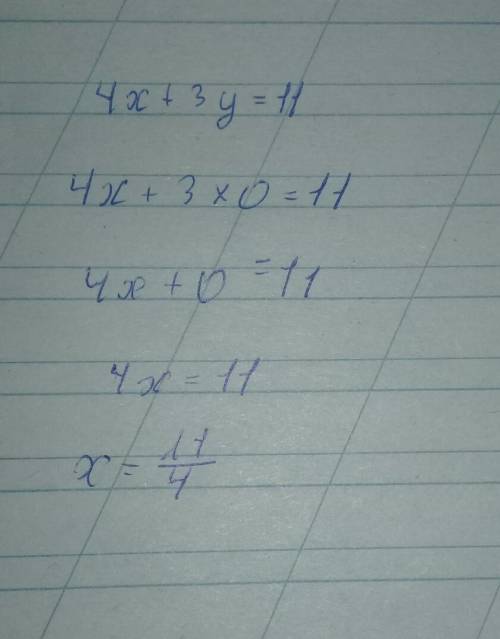 4x + 3y = 11
4x + 3 × 0 = 11
4x + 0 = 11
4x = 11
x = 11/4